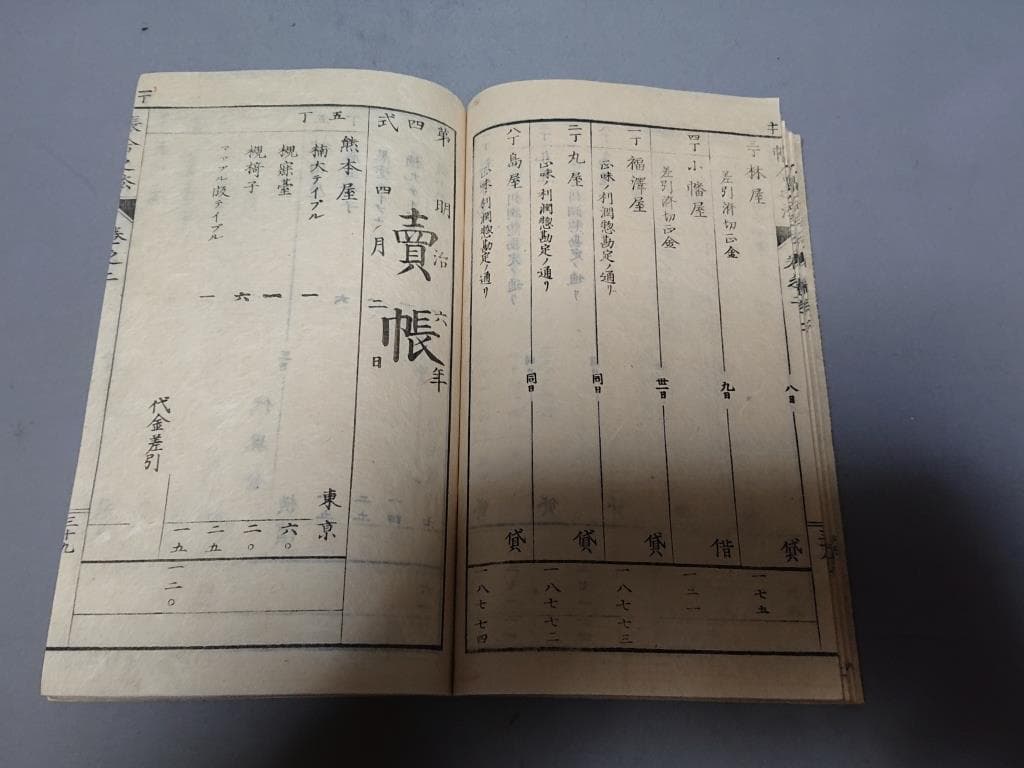 林屋
八日
貸
差引濟切正金
一七五
四丁 小幡屋
九日
借
差引濟切正金
一三一
一丁 福澤屋
卅一日
貸
正味ノ利潤惣勘定ノ通リ
一八七七三
二丁 丸屋
同日
貸
正味ノ利潤惣勘定ノ通リ
一八七七二
八丁 島屋
同日
貸
正味ノ利潤惣勘定ノ通リ
一八七七四
第四式
明治六年
賣帳
四ノ月二日
五丁
熊本屋 東京
楠大テイブル 一 六〇
寐臺 一 二〇
椅子 六 二五
マアブル版テイブル 一 一五
代金差引 一二〇
卷之二
三十九